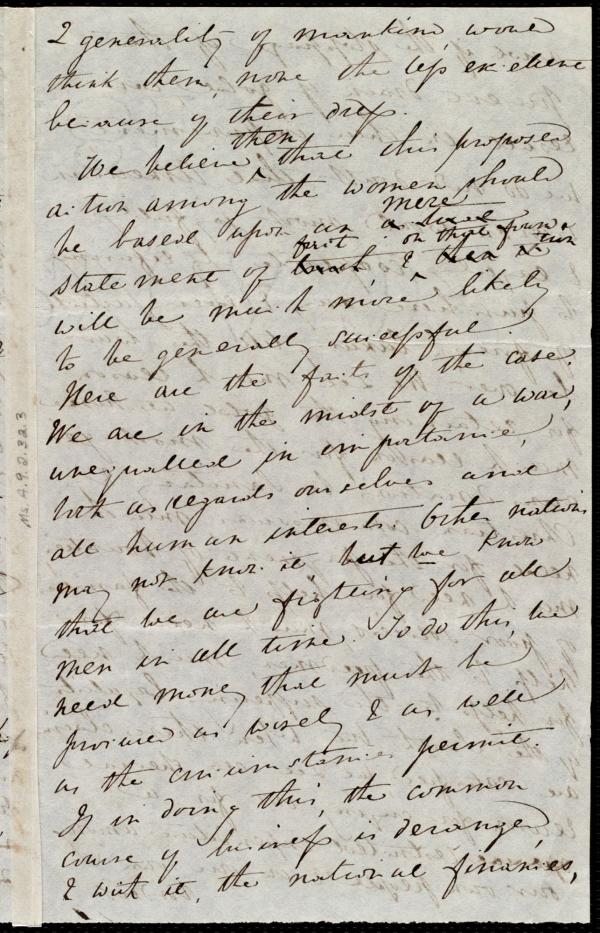 & generality of mankind, would
think them, none the less excellent
because of their dress.
We believe then that this proposed
action among the women should
be based upon a mere
statement of fact: on that foundation
will be much more likely
to be generally successful.
Here are the facts of the case.
We are in the midst of a war,
unequalled in importance,
both as regards ourselves and
all human interests. Other nations
may not know it but we know
that we are fighting for all
men in all time. To do this, we
need money that must be
procured as wisely & as well
as the circumstances permit.
If in doing this, the common
course of business is deranged,
& with it, the national finances,
Ms. A.9.2.32.3